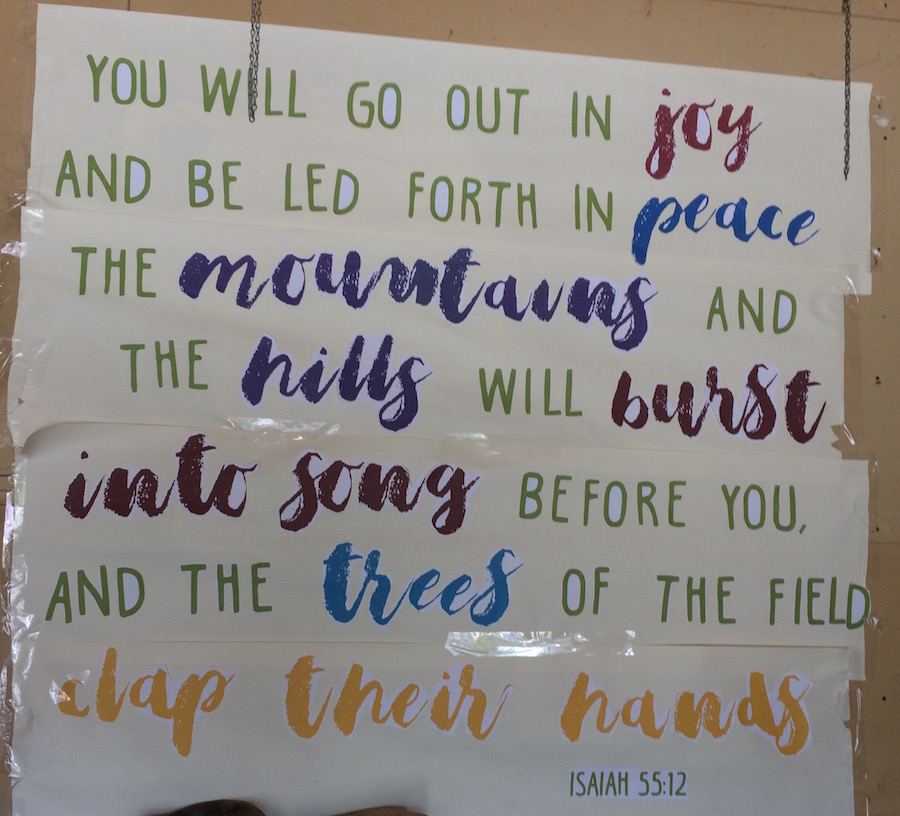 YOU WILL GO OUT IN joy
AND BE LED FORTH IN peace
THE mountains AND
THE hills WILL burst
into song BEFORE YOU,
AND THE trees OF THE FIELD
clap their hands
ISAIAH 55:12